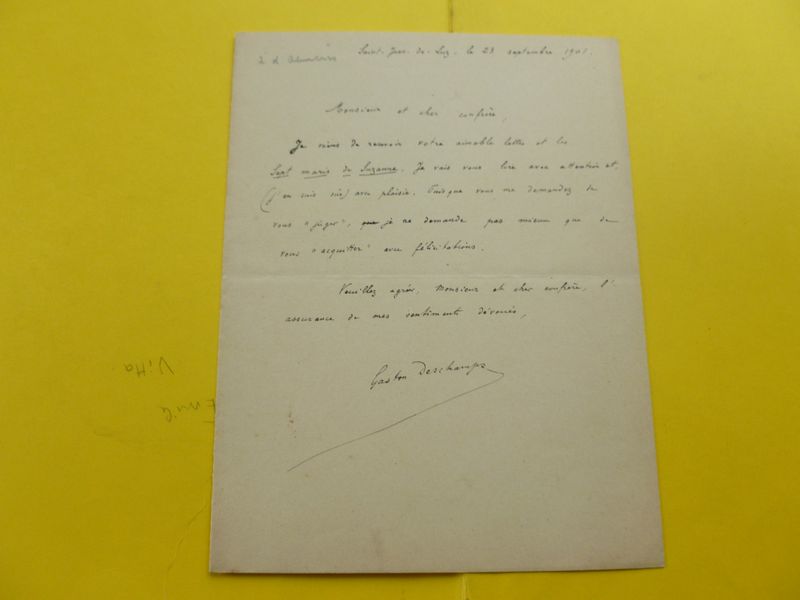 Saint-Jean-de-Luz, le 23 septembre 1901.
Monsieur et cher confrère,
Je viens de recevoir votre aimable lettre et les
Sept maris de Suzanne. Je vais vous lire avec attention et,
(j'en suis sûr) avec plaisir. Puisque vous me demandez de
vous "juger", je ne demande pas mieux que de
vous "acquitter" avec félicitations.
Veuillez agréer, Monsieur et cher confrère, l'
assurance de mes sentiments dévoués,
Gaston Deschamps
Emile
Vitta